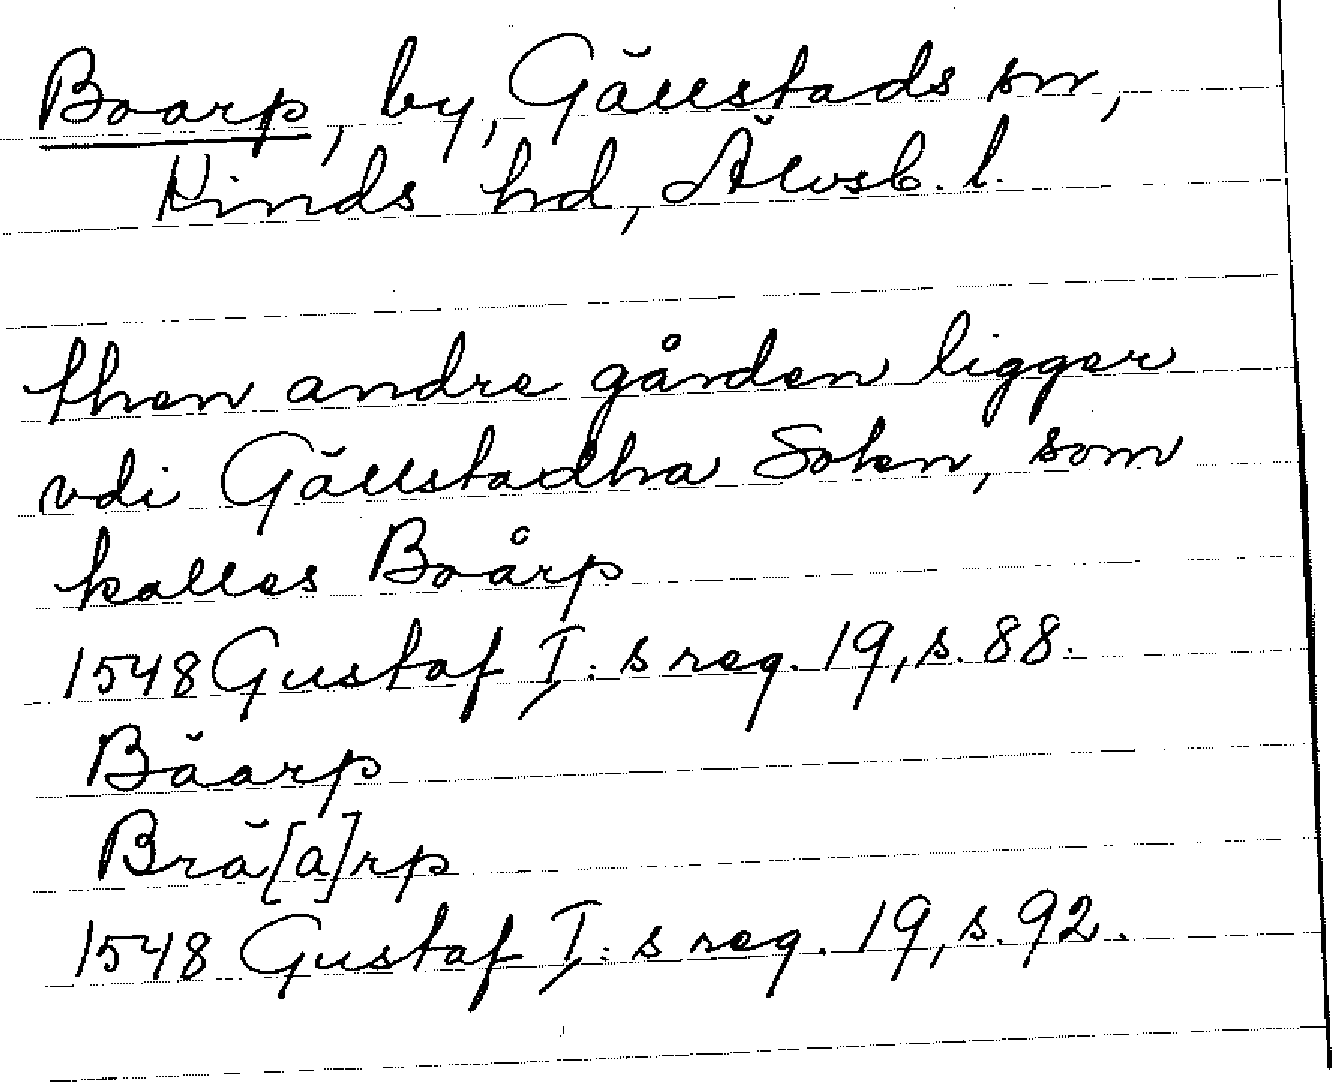 Boarp, by, Gällstads sn,
Kinds hd, Älvsb. l.
then andre gården ligger
vdi Gällstadha Soken, som
kalles Boårp
1548 Gustaf I:s reg. 19, s. 88.
Bäarp
Brä[a]rp
1548 Gustaf I:s reg. 19, s. 92.